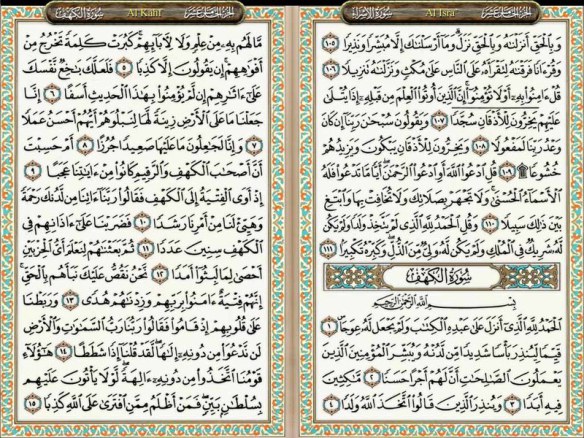 سورة الإسراء Al Isra الجزء الخامس عشر
وَبِٱلْحَقِّ أَنزَلْنَٰهُ وَبِٱلْحَقِّ نَزَلَ وَمَآ أَرْسَلْنَٰكَ إِلَّا مُبَشِّرًا وَنَذِيرًا ١٠٥
وَقُرْءَانًا فَرَقْنَٰهُ لِتَقْرَأَهُۥ عَلَى ٱلنَّاسِ عَلَىٰ مُكْثٍ وَنَزَّلْنَٰهُ تَنزِيلًا ١٠٦
قُلْ ءَامِنُوا۟ بِهِۦٓ أَوْ لَا تُؤْمِنُوٓا۟ إِنَّ ٱلَّذِينَ أُوتُوا۟ ٱلْعِلْمَ مِن قَبْلِهِۦٓ إِذَا يُتْلَىٰ
عَلَيْهِمْ يَخِرُّونَ لِلْأَذْقَانِ سُجَّدًا ١٠٧ وَيَقُولُونَ سُبْحَٰنَ رَبِّنَآ إِن كَانَ
وَعْدُ رَبِّنَا لَمَفْعُولًا ١٠٨ وَيَخِرُّونَ لِلْأَذْقَانِ يَبْكُونَ وَيَزِيدُهُمْ
خُشُوعًا ۩ ١٠٩ قُلِ ٱدْعُوا۟ ٱللَّهَ أَوِ ٱدْعُوا۟ ٱلرَّحْمَٰنَ أَيًّا مَّا تَدْعُوا۟ فَلَهُ
ٱلْأَسْمَآءُ ٱلْحُسْنَىٰ وَلَا تَجْهَرْ بِصَلَاتِكَ وَلَا تُخَافِتْ بِهَا وَٱبْتَغِ
بَيْنَ ذَٰلِكَ سَبِيلًا ١١٠ وَقُلِ ٱلْحَمْدُ لِلَّهِ ٱلَّذِى لَمْ يَتَّخِذْ وَلَدًا وَلَمْ يَكُن
لَّهُۥ شَرِيكٌ فِى ٱلْمُلْكِ وَلَمْ يَكُن لَّهُۥ وَلِىٌّ مِّنَ ٱلذُّلِّ وَكَبِّرْهُ تَكْبِيرًۢا ١١١
سُورَةُ الكَهْفِ
بِسْمِ ٱللَّهِ ٱلرَّحْمَٰنِ ٱلرَّحِيمِ
ٱلْحَمْدُ لِلَّهِ ٱلَّذِىٓ أَنزَلَ عَلَىٰ عَبْدِهِ ٱلْكِتَٰبَ وَلَمْ يَجْعَل لَّهُۥ عِوَجَا ١
قَيِّمًا لِّيُنذِرَ بَأْسًا شَدِيدًا مِّن لَّدُنْهُ وَيُبَشِّرَ ٱلْمُؤْمِنِينَ ٱلَّذِينَ
يَعْمَلُونَ ٱلصَّٰلِحَٰتِ أَنَّ لَهُمْ أَجْرًا حَسَنًا ٢ مَّٰكِثِينَ
فِيهِ أَبَدًا ٣ وَيُنذِرَ ٱلَّذِينَ قَالُوا۟ ٱتَّخَذَ ٱللَّهُ وَلَدًا ٤
سورة الكهف Al Kahf الجزء الخامس عشر
مَّا لَهُم بِهِۦ مِنْ عِلْمٍ وَلَا لِءَابَآئِهِمْ كَبُرَتْ كَلِمَةً تَخْرُجُ مِنْ
أَفْوَٰهِهِمْ إِن يَقُولُونَ إِلَّا كَذِبًا ٥ فَلَعَلَّكَ بَٰخِعٌ نَّفْسَكَ
عَلَىٰٓ ءَاثَٰرِهِمْ إِن لَّمْ يُؤْمِنُوا۟ بِهَٰذَا ٱلْحَدِيثِ أَسَفًا ٦ إِنَّا
جَعَلْنَا مَا عَلَى ٱلْأَرْضِ زِينَةً لَّهَا لِنَبْلُوَهُمْ أَيُّهُمْ أَحْسَنُ عَمَلًا
٧ وَإِنَّا لَجَٰعِلُونَ مَا عَلَيْهَا صَعِيدًا جُرُزًا ٨ أَمْ حَسِبْتَ
أَنَّ أَصْحَٰبَ ٱلْكَهْفِ وَٱلرَّقِيمِ كَانُوا۟ مِنْ ءَايَٰتِنَا عَجَبًا ٩
إِذْ أَوَى ٱلْفِتْيَةُ إِلَى ٱلْكَهْفِ فَقَالُوا۟ رَبَّنَآ ءَاتِنَا مِن لَّدُنكَ رَحْمَةً
وَهَيِّئْ لَنَا مِنْ أَمْرِنَا رَشَدًا ١٠ فَضَرَبْنَا عَلَىٰٓ ءَاذَانِهِمْ فِى
ٱلْكَهْفِ سِنِينَ عَدَدًا ١١ ثُمَّ بَعَثْنَٰهُمْ لِنَعْلَمَ أَىُّ ٱلْحِزْبَيْنِ
أَحْصَىٰ لِمَا لَبِثُوٓا۟ أَمَدًا ١٢ نَّحْنُ نَقُصُّ عَلَيْكَ نَبَأَهُم بِٱلْحَقِّ
إِنَّهُمْ فِتْيَةٌ ءَامَنُوا۟ بِرَبِّهِمْ وَزِدْنَٰهُمْ هُدًى ١٣ وَرَبَطْنَا
عَلَىٰ قُلُوبِهِمْ إِذْ قَامُوا۟ فَقَالُوا۟ رَبُّنَا رَبُّ ٱلسَّمَٰوَٰتِ وَٱلْأَرْضِ
لَن نَّدْعُوَا۟ مِن دُونِهِۦٓ إِلَٰهًا لَّقَدْ قُلْنَآ إِذًا شَطَطًا ١٤ هَٰٓؤُلَآءِ
قَوْمُنَا ٱتَّخَذُوا۟ مِن دُونِهِۦٓ ءَالِهَةً لَّوْلَا يَأْتُونَ عَلَيْهِم
بِسُلْطَٰنٍۭ بَيِّنٍ فَمَنْ أَظْلَمُ مِمَّنِ ٱفْتَرَىٰ عَلَى ٱللَّهِ كَذِبًا ١٥